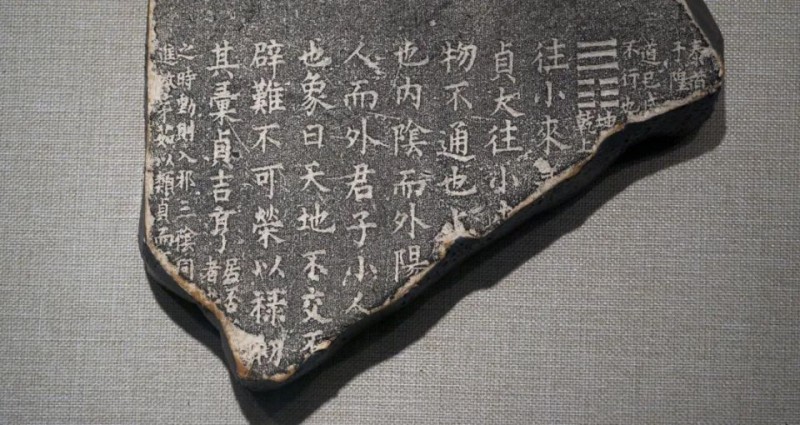 泰
于隍
道已成
不行也
坤
乾上
往小來
貞大往小
物不通也上
也內陰而外陽
人而外君子小人
也象曰天地不交否
辟難不可榮以祿初
其彙貞吉亨居否
者
之時動則入邪三陰同
進茅茹以類貞而